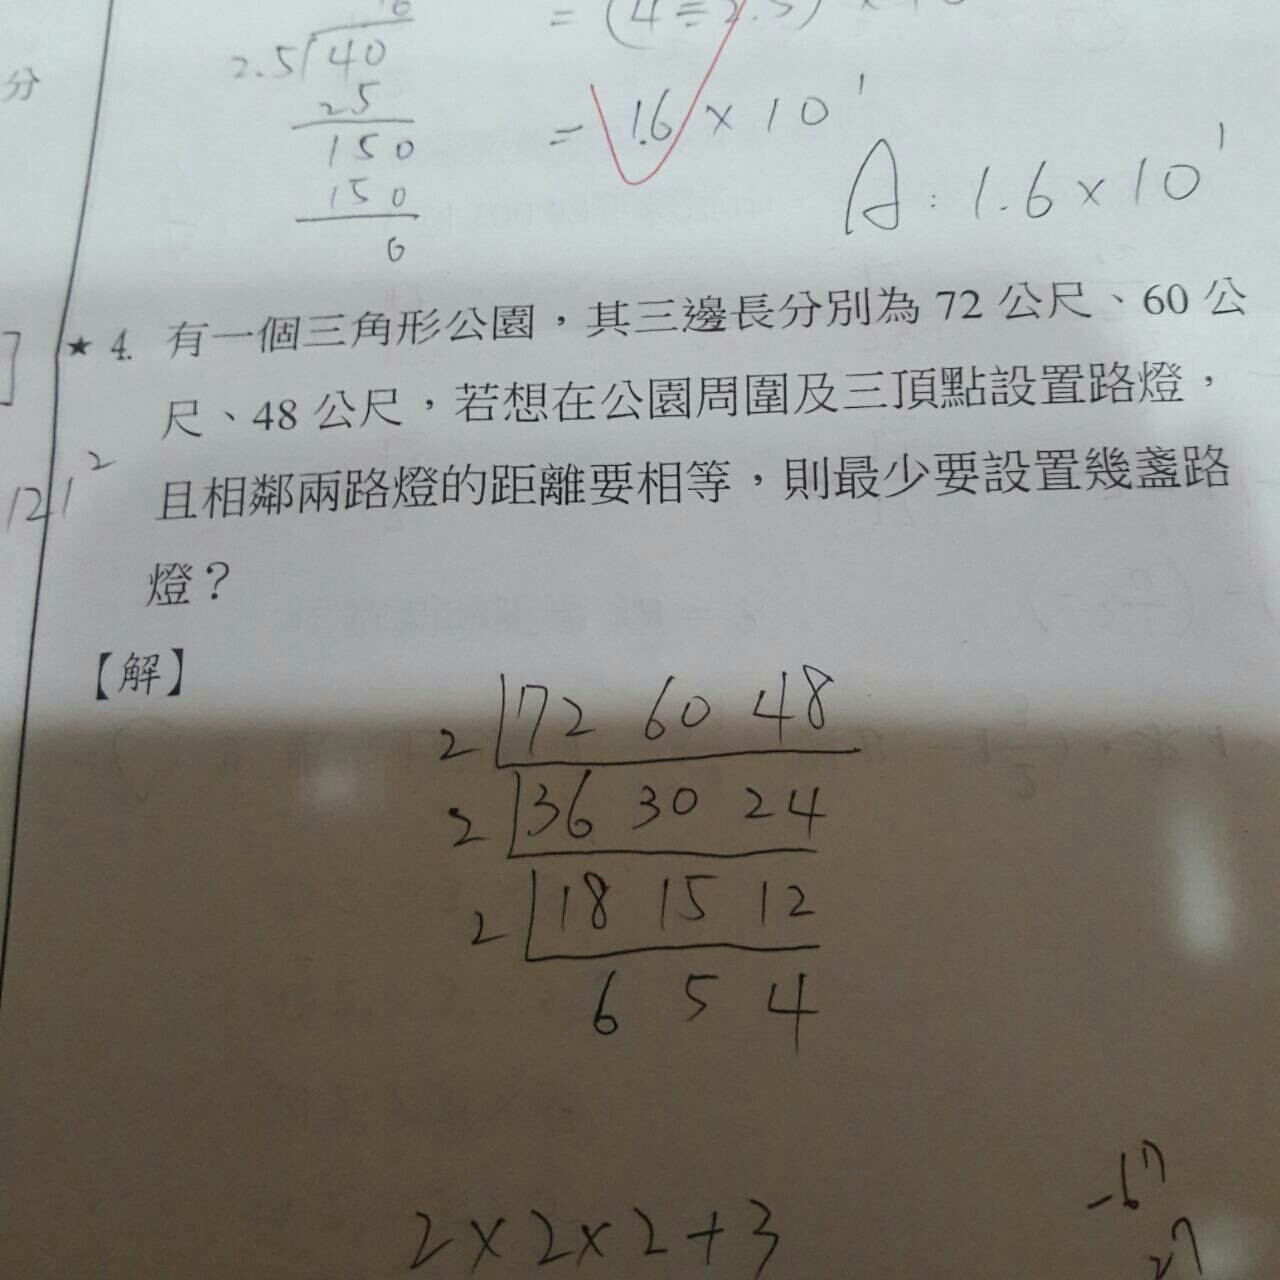 2.5 40
25
150
150
0
= 1.6 × 10¹
A : 1.6 × 10¹
分
★ 4. 有一個三角形公園，其三邊長分別為 72 公尺、60 公
尺、48 公尺，若想在公園周圍及三頂點設置路燈，
且相鄰兩路燈的距離要相等，則最少要設置幾盞路
燈？
121²
【解】
2 72 60 48
2 36 30 24
2 18 15 12
6 5 4
2 × 2 × 2 + 3